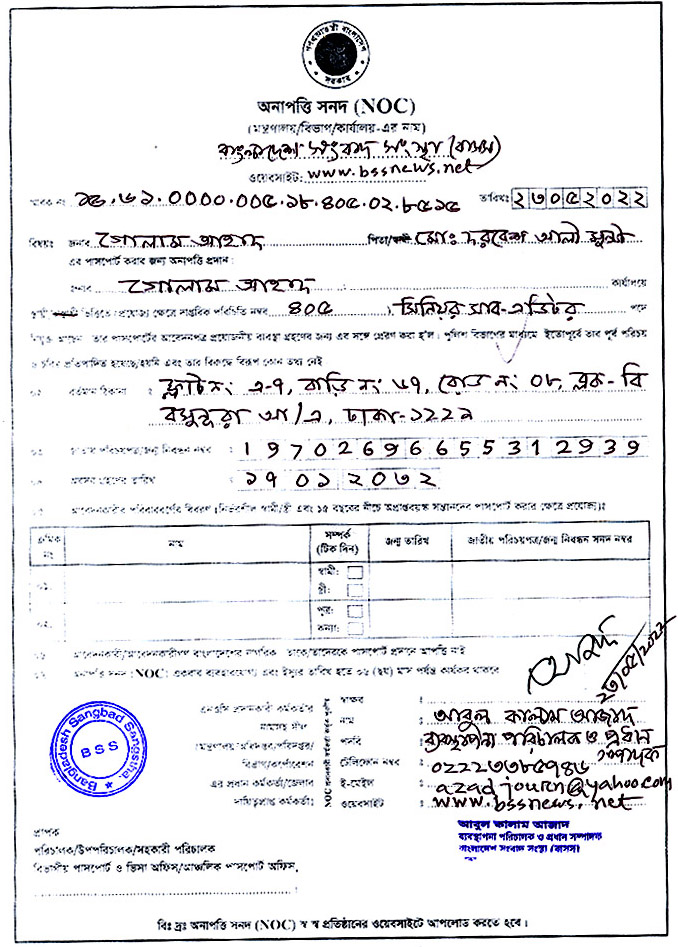 গণপ্রজাতন্ত্রী বাংলাদেশ সরকার
অনাপত্তি সনদ (NOC)
(মন্ত্রণালয়/বিভাগ/কার্যালয়-এর নাম)
বাংলাদেশ সংবাদ সংস্থা (বাসস)
ওয়েবসাইট: www.bssnews.net
স্মারক নং তারিখঃ ২৩০৫২০২২
বিষয়: জনাব গোলাম আহাদ পিতা/স্বামী মোঃ দরবেশ আলী
এর পাসপোর্ট করার জন্য অনাপত্তি প্রদান :
জনাব গোলাম আহাদ কার্যালয়ে
(প্রযোজ্য ক্ষেত্রে দাপ্তরিক পরিচিতি নম্বর ৪০৫ ) সিনিয়র সাব-এডিটর পদে
আছেন তার পাসপোর্টের আবেদনপত্র প্রয়োজনীয় ব্যবস্থা গ্রহণের জন্য এর সঙ্গে প্রেরণ করা হ'ল। পুলিশ বিভাগের মাধ্যমে ইতোপূর্বে তার পূর্ব পরিচয়
ও চরিত্র প্রতিপাদিত হয়েছে/হয়নি এবং তার বিরুদ্ধে বিরূপ কোন তথ্য নেই
বর্তমান ঠিকানা : ফ্ল্যাট নং এ-৭, বাড়ি নং ৬৭, রোড নং ০৮, ব্লক-বি
বসুন্ধরা আ/এ, ঢাকা-১২২৯
জাতীয় পরিচয়পত্র/জন্ম নিবন্ধন নম্বর : 19702696655312939
অবসর গ্রহণের তারিখ : ১৭০১২০৩২
আবেদনকারীর পরিবারবর্গের বিবরণ (নির্ভরশীল স্বামী/স্ত্রী এবং ১৫ বছরের নীচে অপ্রাপ্তবয়স্ক সন্তানদের পাসপোর্ট করার ক্ষেত্রে প্রযোজ্য)ঃ
ক্রমিক নং নাম সম্পর্ক (টিক দিন) জন্ম তারিখ জাতীয় পরিচয়পত্র/জন্ম নিবন্ধন সনদ নম্বর
০১. স্বামী:
স্ত্রী:
০২. পুত্র:
কন্যা:
আবেদনকারী/আবেদনকারীগণ বাংলাদেশের নাগরিক তাকে/তাদেরকে পাসপোর্ট প্রদানে আপত্তি নাই
অনাপত্তি সনদ (NOC) একবার ব্যবহারযোগ্য এবং ইস্যুর তারিখ হতে ০৬ (ছয়) মাস পর্যন্ত কার্যকর থাকবে
২৩/০৫/২০২২
Bangladesh Sangbad Sangstha
BSS
স্বাক্ষর :
নাম : আবুল কালাম আজাদ
পদবি : ব্যবস্থাপনা পরিচালক ও প্রধান সম্পাদক
টেলিফোন নম্বর : ০২২২৩৩৮৫৭৪৬
ই-মেইল : azadjourn@yahoo.com
ওয়েবসাইট : www.bssnews.net
আবুল কালাম আজাদ
ব্যবস্থাপনা পরিচালক ও প্রধান সম্পাদক
বাংলাদেশ সংবাদ সংস্থা (বাসস)
প্রাপক
পরিচালক/উপপরিচালক/সহকারী পরিচালক
বিভাগীয় পাসপোর্ট ও ভিসা অফিস/আঞ্চলিক পাসপোর্ট অফিস,
বিঃ দ্রঃ অনাপত্তি সনদ (NOC) স্ব স্ব প্রতিষ্ঠানের ওয়েবসাইটে আপলোড করতে হবে।